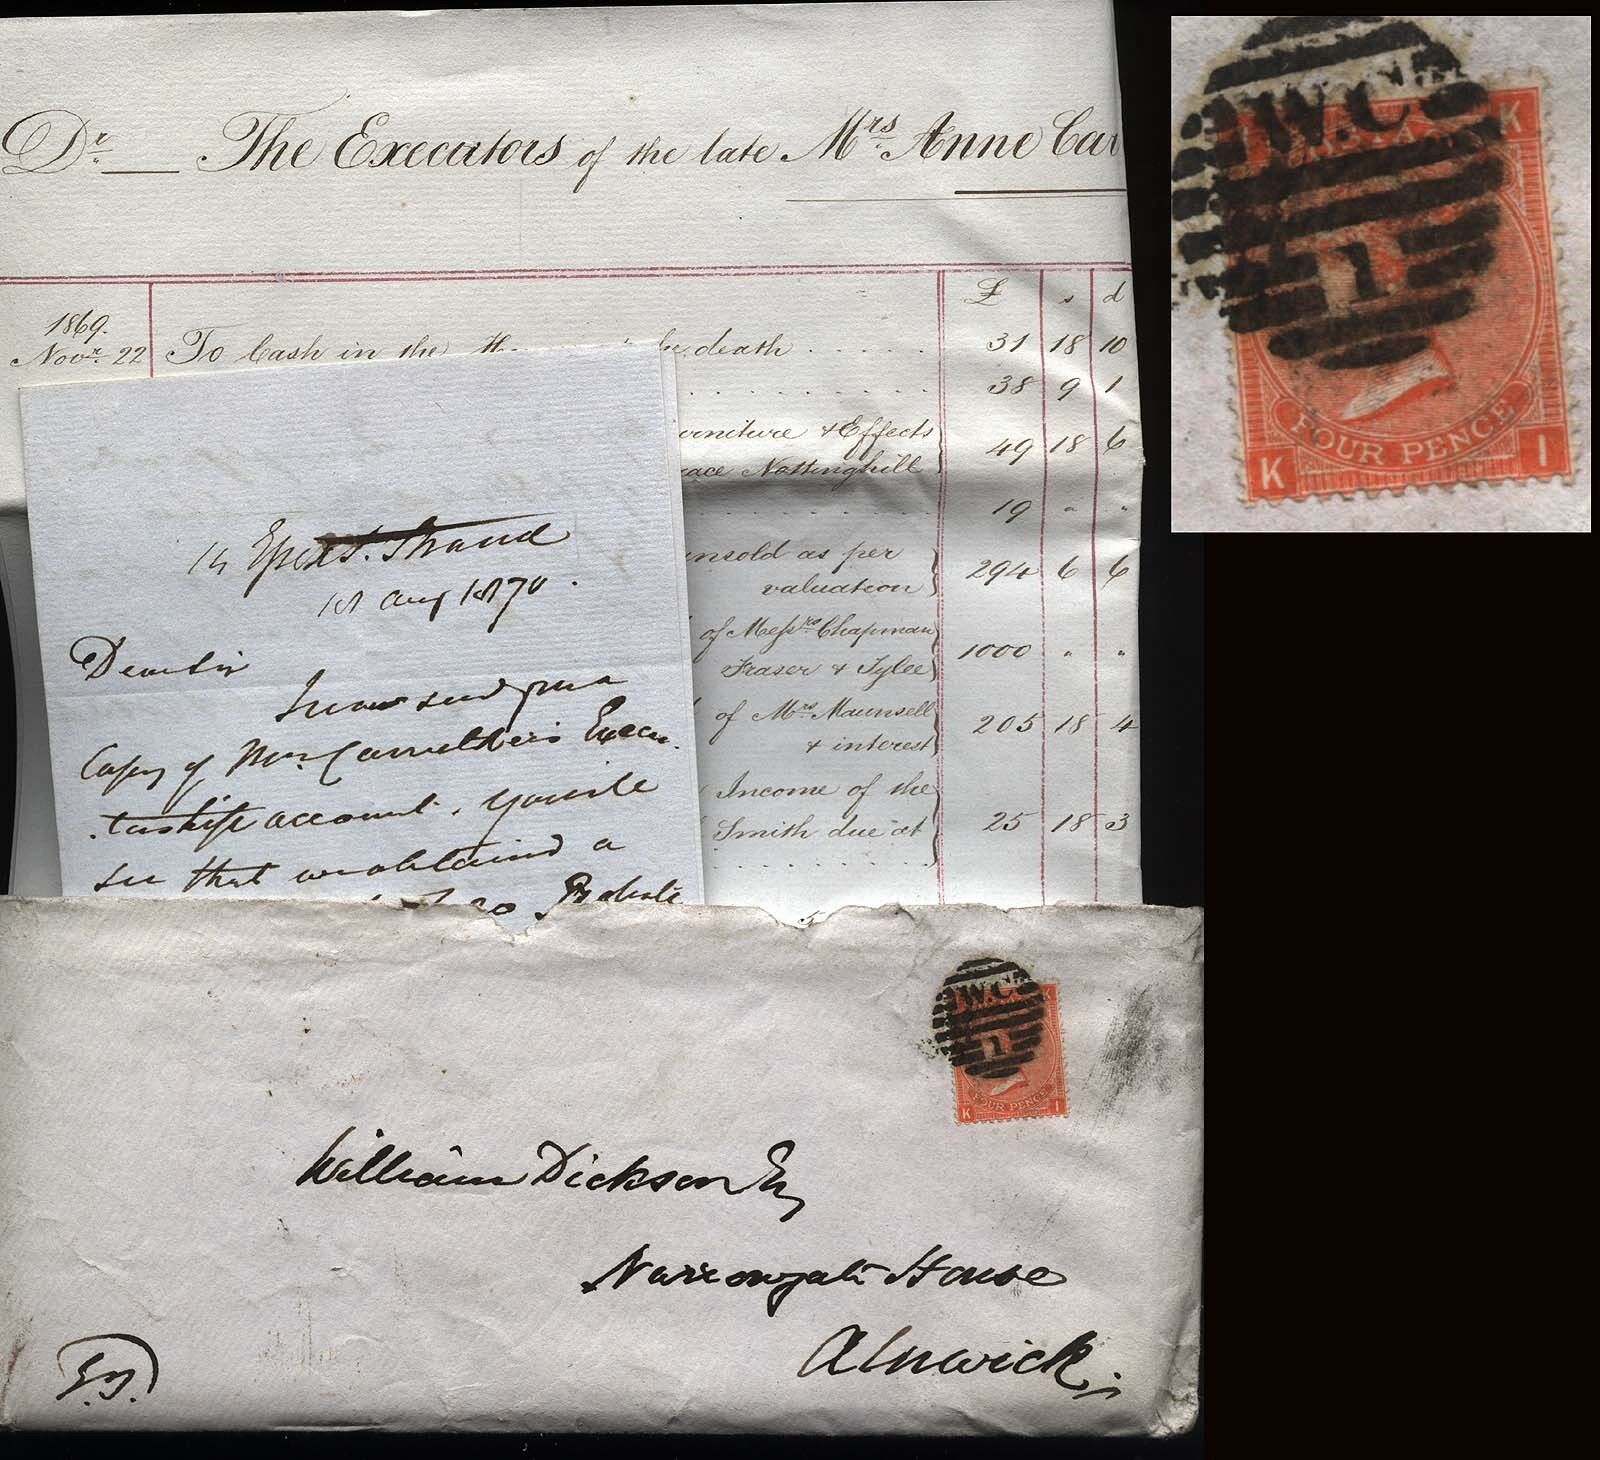 Dr. The Executors of the late Mrs Anne Car
£ s d
1869.
Novr. 22 To Cash in the death 31 18 10
38 9 1
urniture & Effects
ace Nottinghill 49 18 6
19 " "
unsold as per
valuation 294 6 6
of Messrs Chapman
Fraser & Tylee 1000 " "
of Mrs. Maunsell
& interest 205 18 4
Income of the
Smith due at 25 18 3
5
14 Essex St. Strand
1st Aug 1870.
Dear Sir
I now send you a
Copy of Mrs. Carruthers's Execu-
-torship account. You'll
see that we obtained a
Probate
W.C
1
K
FOUR PENCE
K I
William Dickson Esq
Narrowgate House
Alnwick.
W.C
1
K
FOUR PENCE
K I